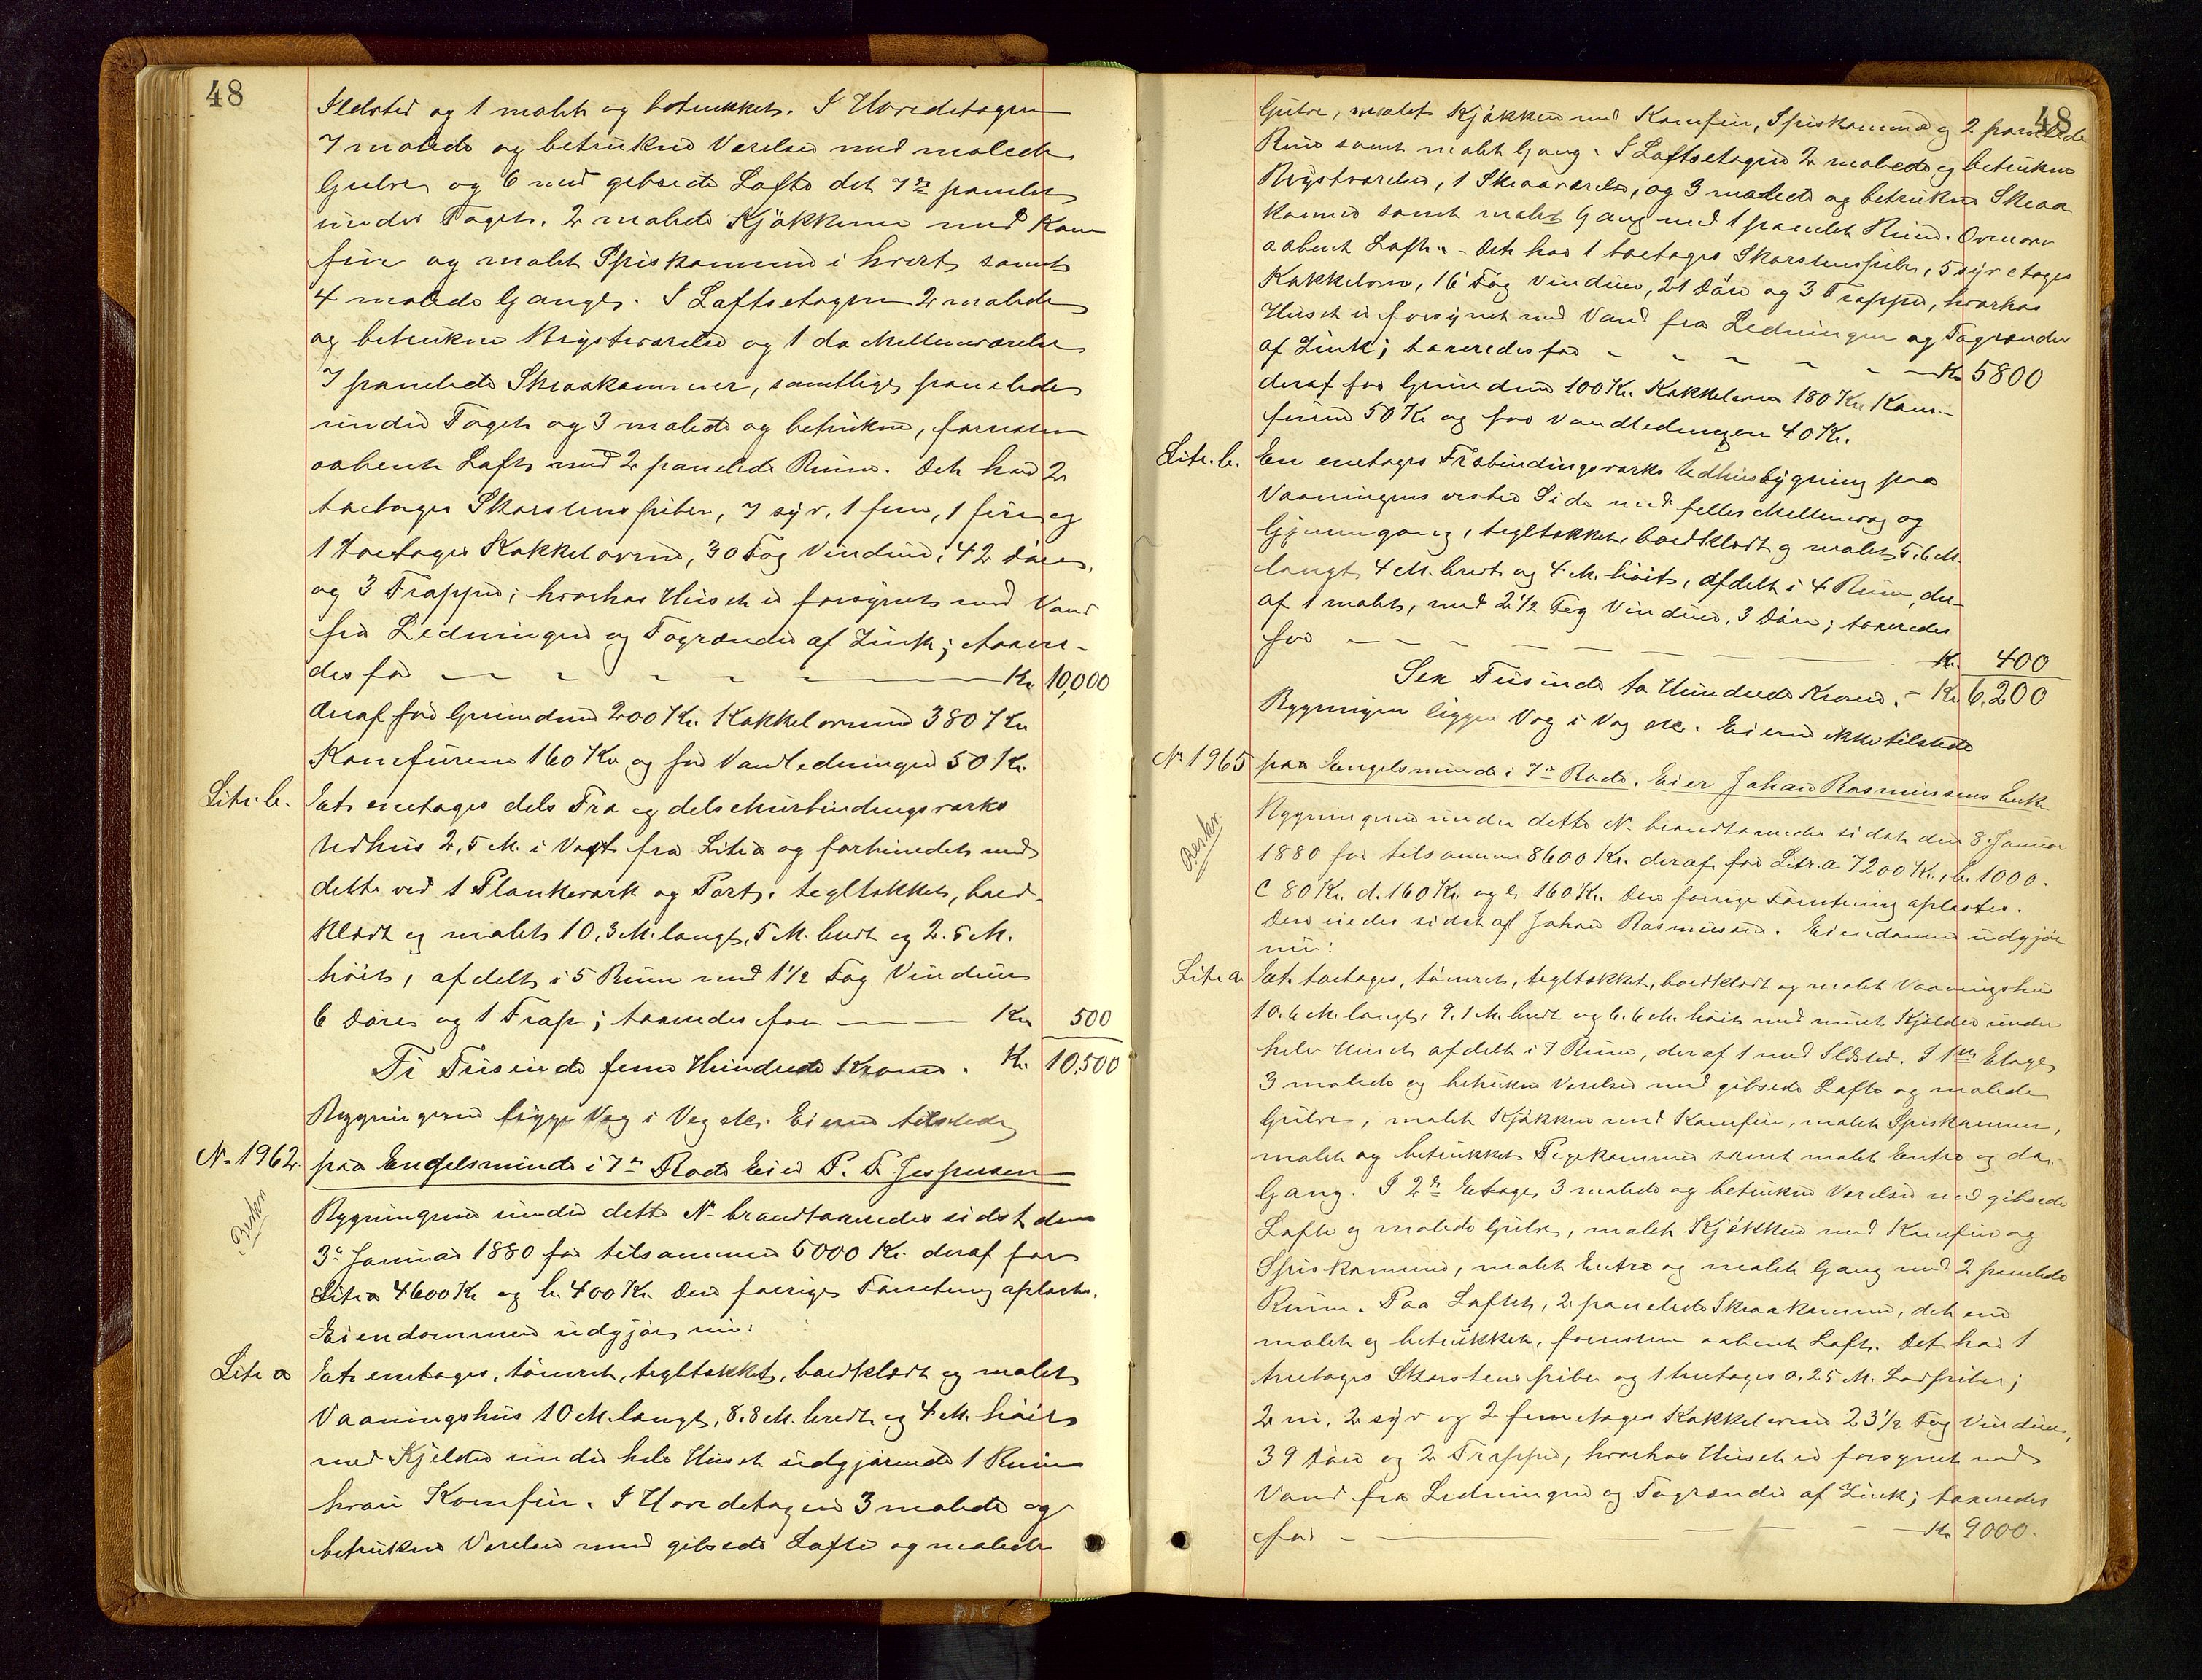 48
Ildsted og 1 malet og betrukket. I Hovedetagen
7 malede og betrukne Værelser med malede
Gulve og 6 med gibsede Lofte det 7de panelet
under Taget. 2 malede Kjøkkener med Kom-
fur og malet Spiskammer i hvert samt
4 malede Gange. I Loftsetagen 2 malede
og betrukne Brystværelser og 1 do Mellemværelse
7 panelede Skraakammer, samtlige panelede
under Taget og 3 malede og betrukne, forresten
aabent Loft med 2 panelede Rum. Det har 2
toetages Skorstenspiber, 7 syv, 1 fem, 1 fire og
1 toetages Kakkelovne, 30 Fag Vinduer, 42 Døre,
og 3 Trapper; hvorhos Huset er forsynet med Vand
fra Ledningen og Tagrender af Zink; taxere-
des for — Kr. 10,000
deraf for Grunden 200 Kr. Kakkelovnene 380 Kr
Komfurene 160 Kr og for Vandledningen 50 Kr.
Litr. b. Et enetages dels Træ og dels Murbindingsværks
Udhus 2,5 M. i Vest fra Litr a og forbundet med
dette ved 1 Plankeværk og Port, tegltækket, bord-
klædt og malet 10,3 M. langt, 5 M. bredt og 2.5 M.
høit, afdelt i 5 Rum med 1½ Fag Vinduer
6 Døre og 1 Trap; taxeredes for — Kr 500
Ti Tusinde fem Hundrede Kroner. Kr. 10,500
Bygningerne ligge Væg i Væg etc. Eieren tilstede
No 1962 paa Engelsminde i 7de Rode Eier P. F. Jespersen
Beskr.
Bygningerne under dette No brandtaxeredes sidst den
3de Januar 1880 for tilsammen 5000 Kr. deraf for
Litr a 4600 Kr og b. 400 Kr. Den forrige Forretning oplæstes.
Eiendommen udgjør nu:
Litr a Et enetages, tømret, tegltækket, bordklædt og malet
Vaaningshus 10 M. langt, 8.8 M. bredt og 4 M. høit
med Kjelder under hele Huset udgjørende 1 Rum
hvori Komfur. I Hovedetagen 3 malede og
betrukne Værelser med gibsede Lofte og malede
48
Gulve, malet Kjøkken med Komfur, Spiskammer og 2 panelede
Rum samt malet Gang. I Loftsetagen 2 malede og betrukne
Brystværelser, 1 Skraaværelse, og 3 malede og betrukne Skraa
kammer samt malet Gang med 1 panelet Rum. Ovenover
aabent Loft. - Det har 1 toetages Skorstenspibe, 5 syvetages
Kakkelovne, 16 Fag Vinduer, 21 Døre og 3 Trapper, hvorhos
Huset er forsynet med Vand fra Ledningen og Tagrender
af Zink; taxeredes for — Kr 5800
deraf for Grunden 100 Kr. Kakkelovne 180 Kr. Kom-
furene 50 Kr og for Vandledningen 40 Kr.
Litr. b. En enetages Træbindingsværks Udhusbygning paa
Vaaningens vestre Side med felles Mellemvæg og
Gjennemgang, tegltækket, bordklædt og malet 5.6 M.
langt, 4 M. bredt og 4 M. høit, afdelt i 4 Rum, der-
af 1 malet, med 2½ Fag Vinduer, 3 Døre; taxeredes
for — Kr. 400
Sex Tusinde to Hundrede Kroner. - Kr. 6,200
Bygningen ligger Væg i Væg etc. Eieren ikke tilstede
No 1965 paa Engelsminde i 7de Rode. Eier Johan Rasmussens Enke
Beskr.
Bygningerne under dette No brandtaxeredes sidst den 8. Januar
1880 for tilsammen 8600 Kr. deraf for Litr. a 7200 Kr., b. 1000.
c 80 Kr. d. 160 Kr. og e 160 Kr. Den forrige Forretning oplæstes.
Den eiedes sidst af Johan Rasmussen. Eiendommen udgjør
nu:
Litr a. Et toetages, tømret, tegltækket, bordklædt og malet Vaaningshus
10.6 M. langt, 9.1 M. bredt og 6.6 M. høit med muret Kjelder under
hele Huset afdelt i 7 Rum, deraf 1 med Ildsted. I 1ste Etage
3 malede og betrukne Værelser med gibsede Lofte og malede
Gulve, malet Kjøkken med Komfur, malet Spiskammer,
malet og betrukket Pigekammer samt malet Entre og do.
Gang. I 2den Etage 3 malede og betrukne Værelser med gibsede
Lofte og malede Gulve, malet Kjøkken med Komfur og
Spiskammer, malet Entre og malet Gang med 2 panelede
Rum. Paa Loftet, 2 panelede Skraakammer, det ene
malet og betrukket, forresten aabent Loft. Det har 1
tretages Skorstenspibe og 1 tretages 0.25 M. Lodpibe;
2 ni, 2 syv og 2 femetages Kakkelovne 23½ Fag Vinduer,
39 Døre og 2 Trapper, hvorhos Huset er forsynet med
Vand fra Ledningen og Tagrender af Zink; taxeredes
for — Kr 9000.